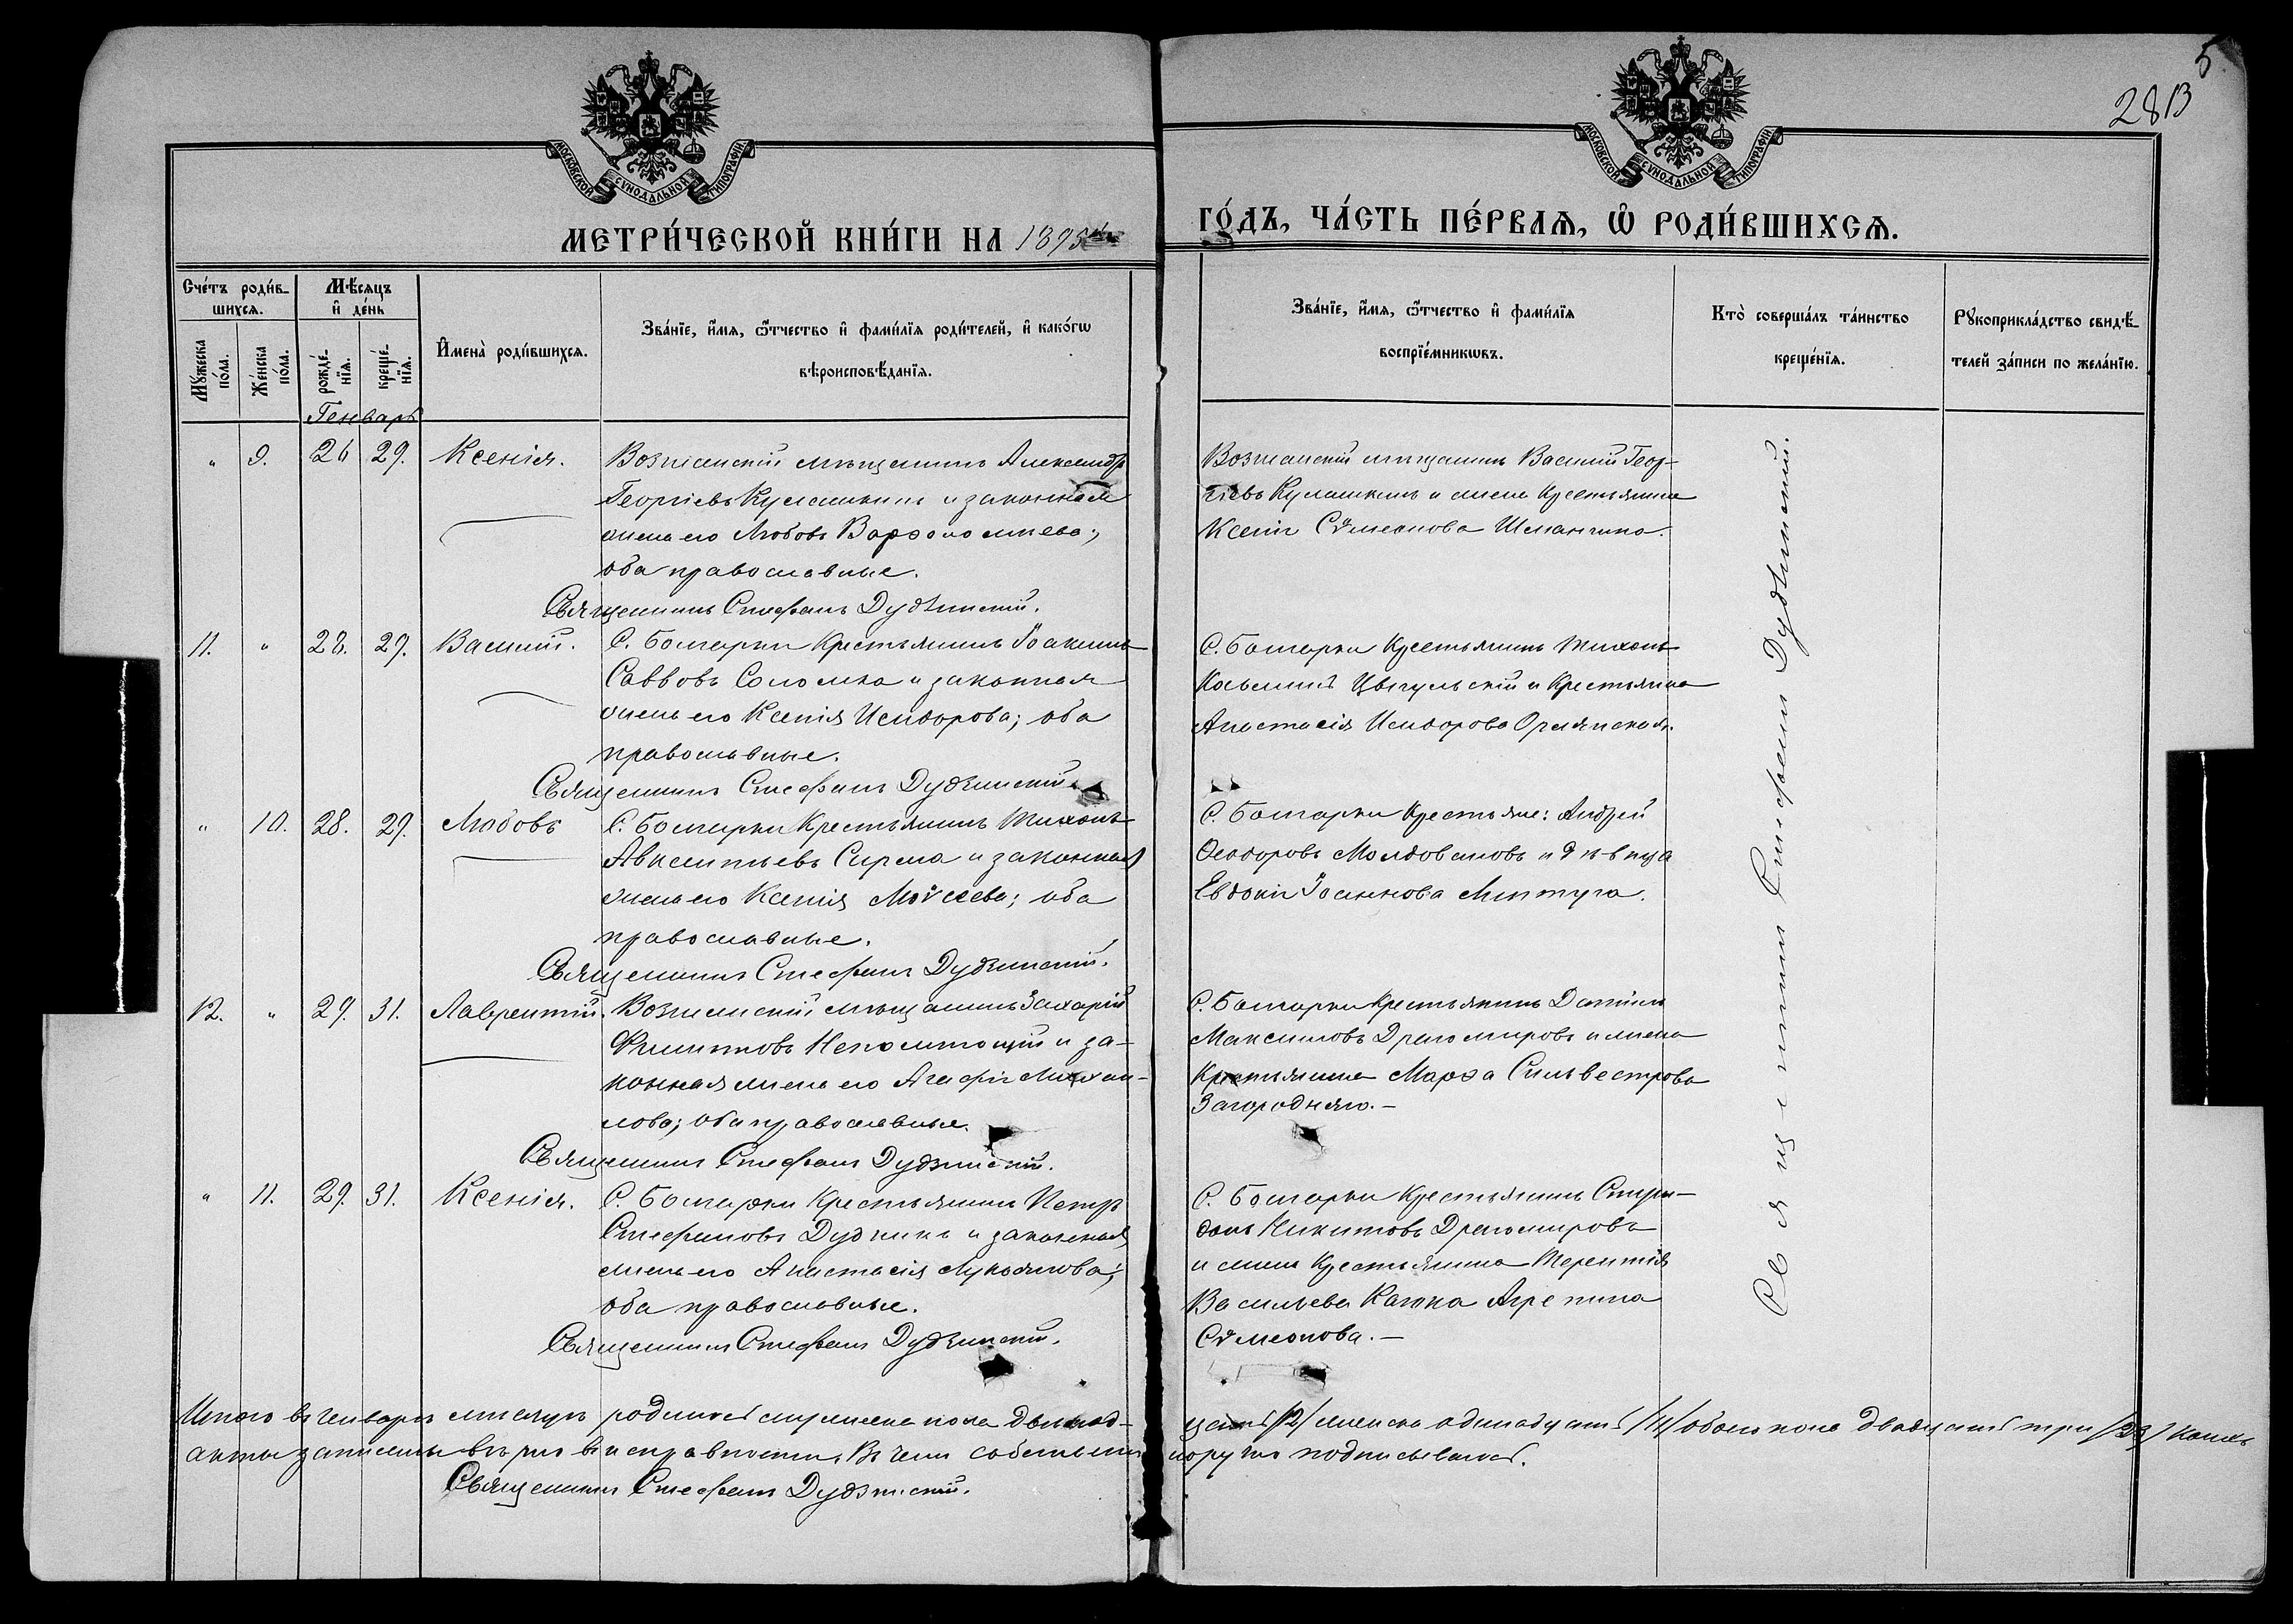 5
2813
МОСКОВСКОЙ СѴНОДАЛЬНОЙ ТИПОГРАФІИ
МОСКОВСКОЙ СѴНОДАЛЬНОЙ ТИПОГРАФІИ
МЕТРИ́ЧЕСКОЙ КНИ́ГИ НА 1895
ГО́ДЪ, ЧА́СТЬ ПЕ́РВАѦ, Ѡ҆ РОДИ́ВШИХСѦ.
Сче́тъ роди́в-
шихсѧ.
Мꙋ́жеска по́ла.
Же́нска по́ла.
Мѣ́сѧцъ
и҆ де́нь
рожде́-нїѧ.
креще́-нїѧ.
И҆мена̀ роди́вшихсѧ.
Зва́нїе, и҆́мѧ, ѻ҆́тчество и҆ фами́лїѧ роди́телей, и҆ како́гѡ
вѣроисповѣ́данїѧ.
Зва́нїе, и҆́мѧ, ѻ҆́тчество и҆ фами́лїѧ
воспрїе́мникѡвъ.
Кто̀ соверша́лъ та́инство
креще́нїѧ.
Рꙋкоприкла́дство свидѣ́-
телей за́писи по жела́нїю.
Генварь
" 9. 26 29. Ксенія. Вознесенскій мѣщанинъ Александръ
Георгіевъ Кулашкинъ и законная
жена его Любовь Варѳоломѣева;
оба православные.
Священникъ Стефанъ Дудзинскій.
Вознесенскій мѣщанинъ Василій Геор-
гіевъ Кулашкинъ и жена крестьянина
Ксенія Сѵмеонова
11. " 28. 29. Василій. С. Болгарки крестьянинъ Іоакимъ
Саввовъ Соломка и законная
жена его Ксенія Исидорова; оба
православные.
Священникъ Стефанъ Дудзинскій.
С. Болгарки крестьянинъ Тихонъ
Цвигульскій и крестьянка
Анастасія Исидорова
" 10. 28. 29. Любовь С. Болгарки крестьянинъ Тихонъ
Авксентьевъ Сирма и законная
жена его Ксенія Моѵсеева; оба
православные.
Священникъ Стефанъ Дудзинскій.
С. Болгарки крестьяне: Андрей
Ѳеодоровъ Молдовановъ и дѣвица
Евдокія Іоаннова
12. " 29. 31. Лаврентій. Вознесенскій мѣщанинъ Захарій
Филипповъ Непомтощій и за-
конная жена его Агафія Михаи-
лова; оба православные.
Священникъ Стефанъ Дудзинскій.
С. Болгарки крестьянинъ Даніилъ
Максимовъ Драгомировъ и жена
крестьянина Марѳа Сильвестрова
Загородняго. —
" 11. 29. 31. Ксенія. С. Болгарки крестьянинъ Петръ
Стефановъ Дудникъ и законная
жена его Анастасія Лукьянова;
оба православные.
Священникъ Стефанъ Дудзинскій.
С. Болгарки крестьянинъ Спири-
донъ Никитовъ Драгомировъ
и жена крестьянина Терентія
Васильева Агрепина
Сѵмеонова. —
Священникъ Стефанъ Дудзинскій.
Итого въ генварѣ мѣсяцѣ родилось мужеска пола двѣнад-
цать /12/ женска одинадцать /11/ обоего пола двадцать три /23/ коихъ
акты записаны вѣрно въ исправности, въ чемъ собственно-
ручно подписываюсь.
Священникъ Стефанъ Дудзинскій.